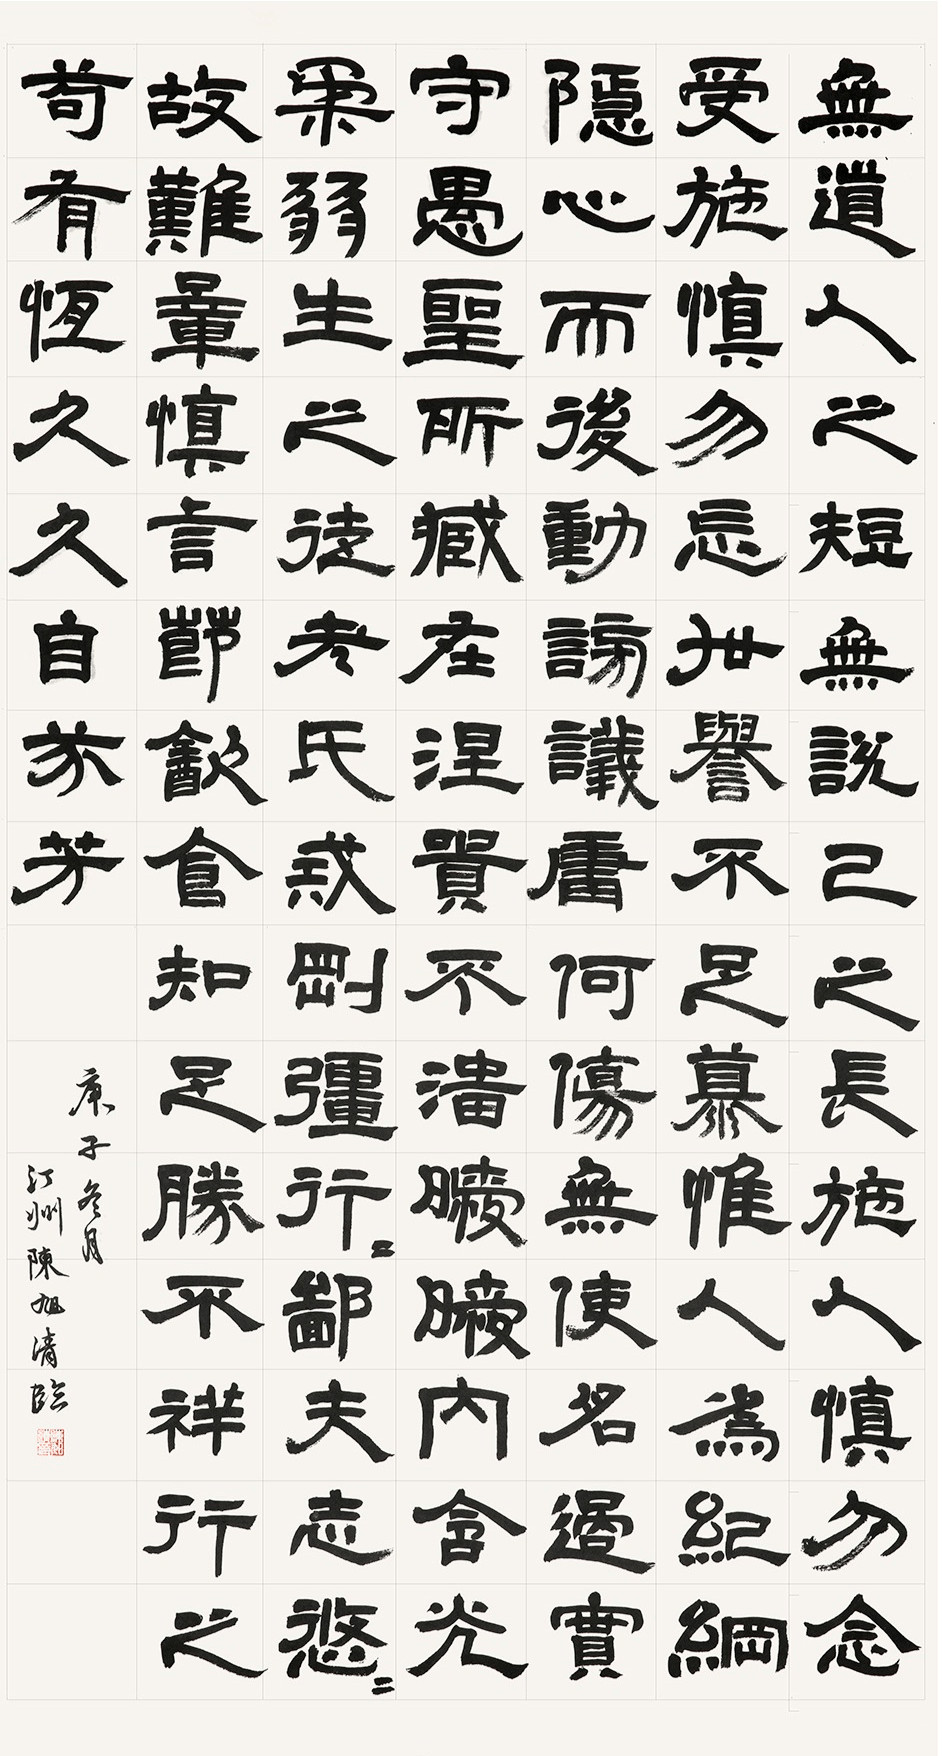 無道人之短無說己之長施人慎勿念
受施慎勿忘世譽不足慕惟人為紀綱
隱心而後動謗議庸何傷無使名過實
守愚聖所臧在涅貴不淄曖曖內含光
柔弱生之徒老氏誡剛彊行〻鄙夫志悠〻
故難量慎言節飲食知足勝不祥行之
苟有恆久久自芬芳
庚子冬月
汀州陳旭清臨